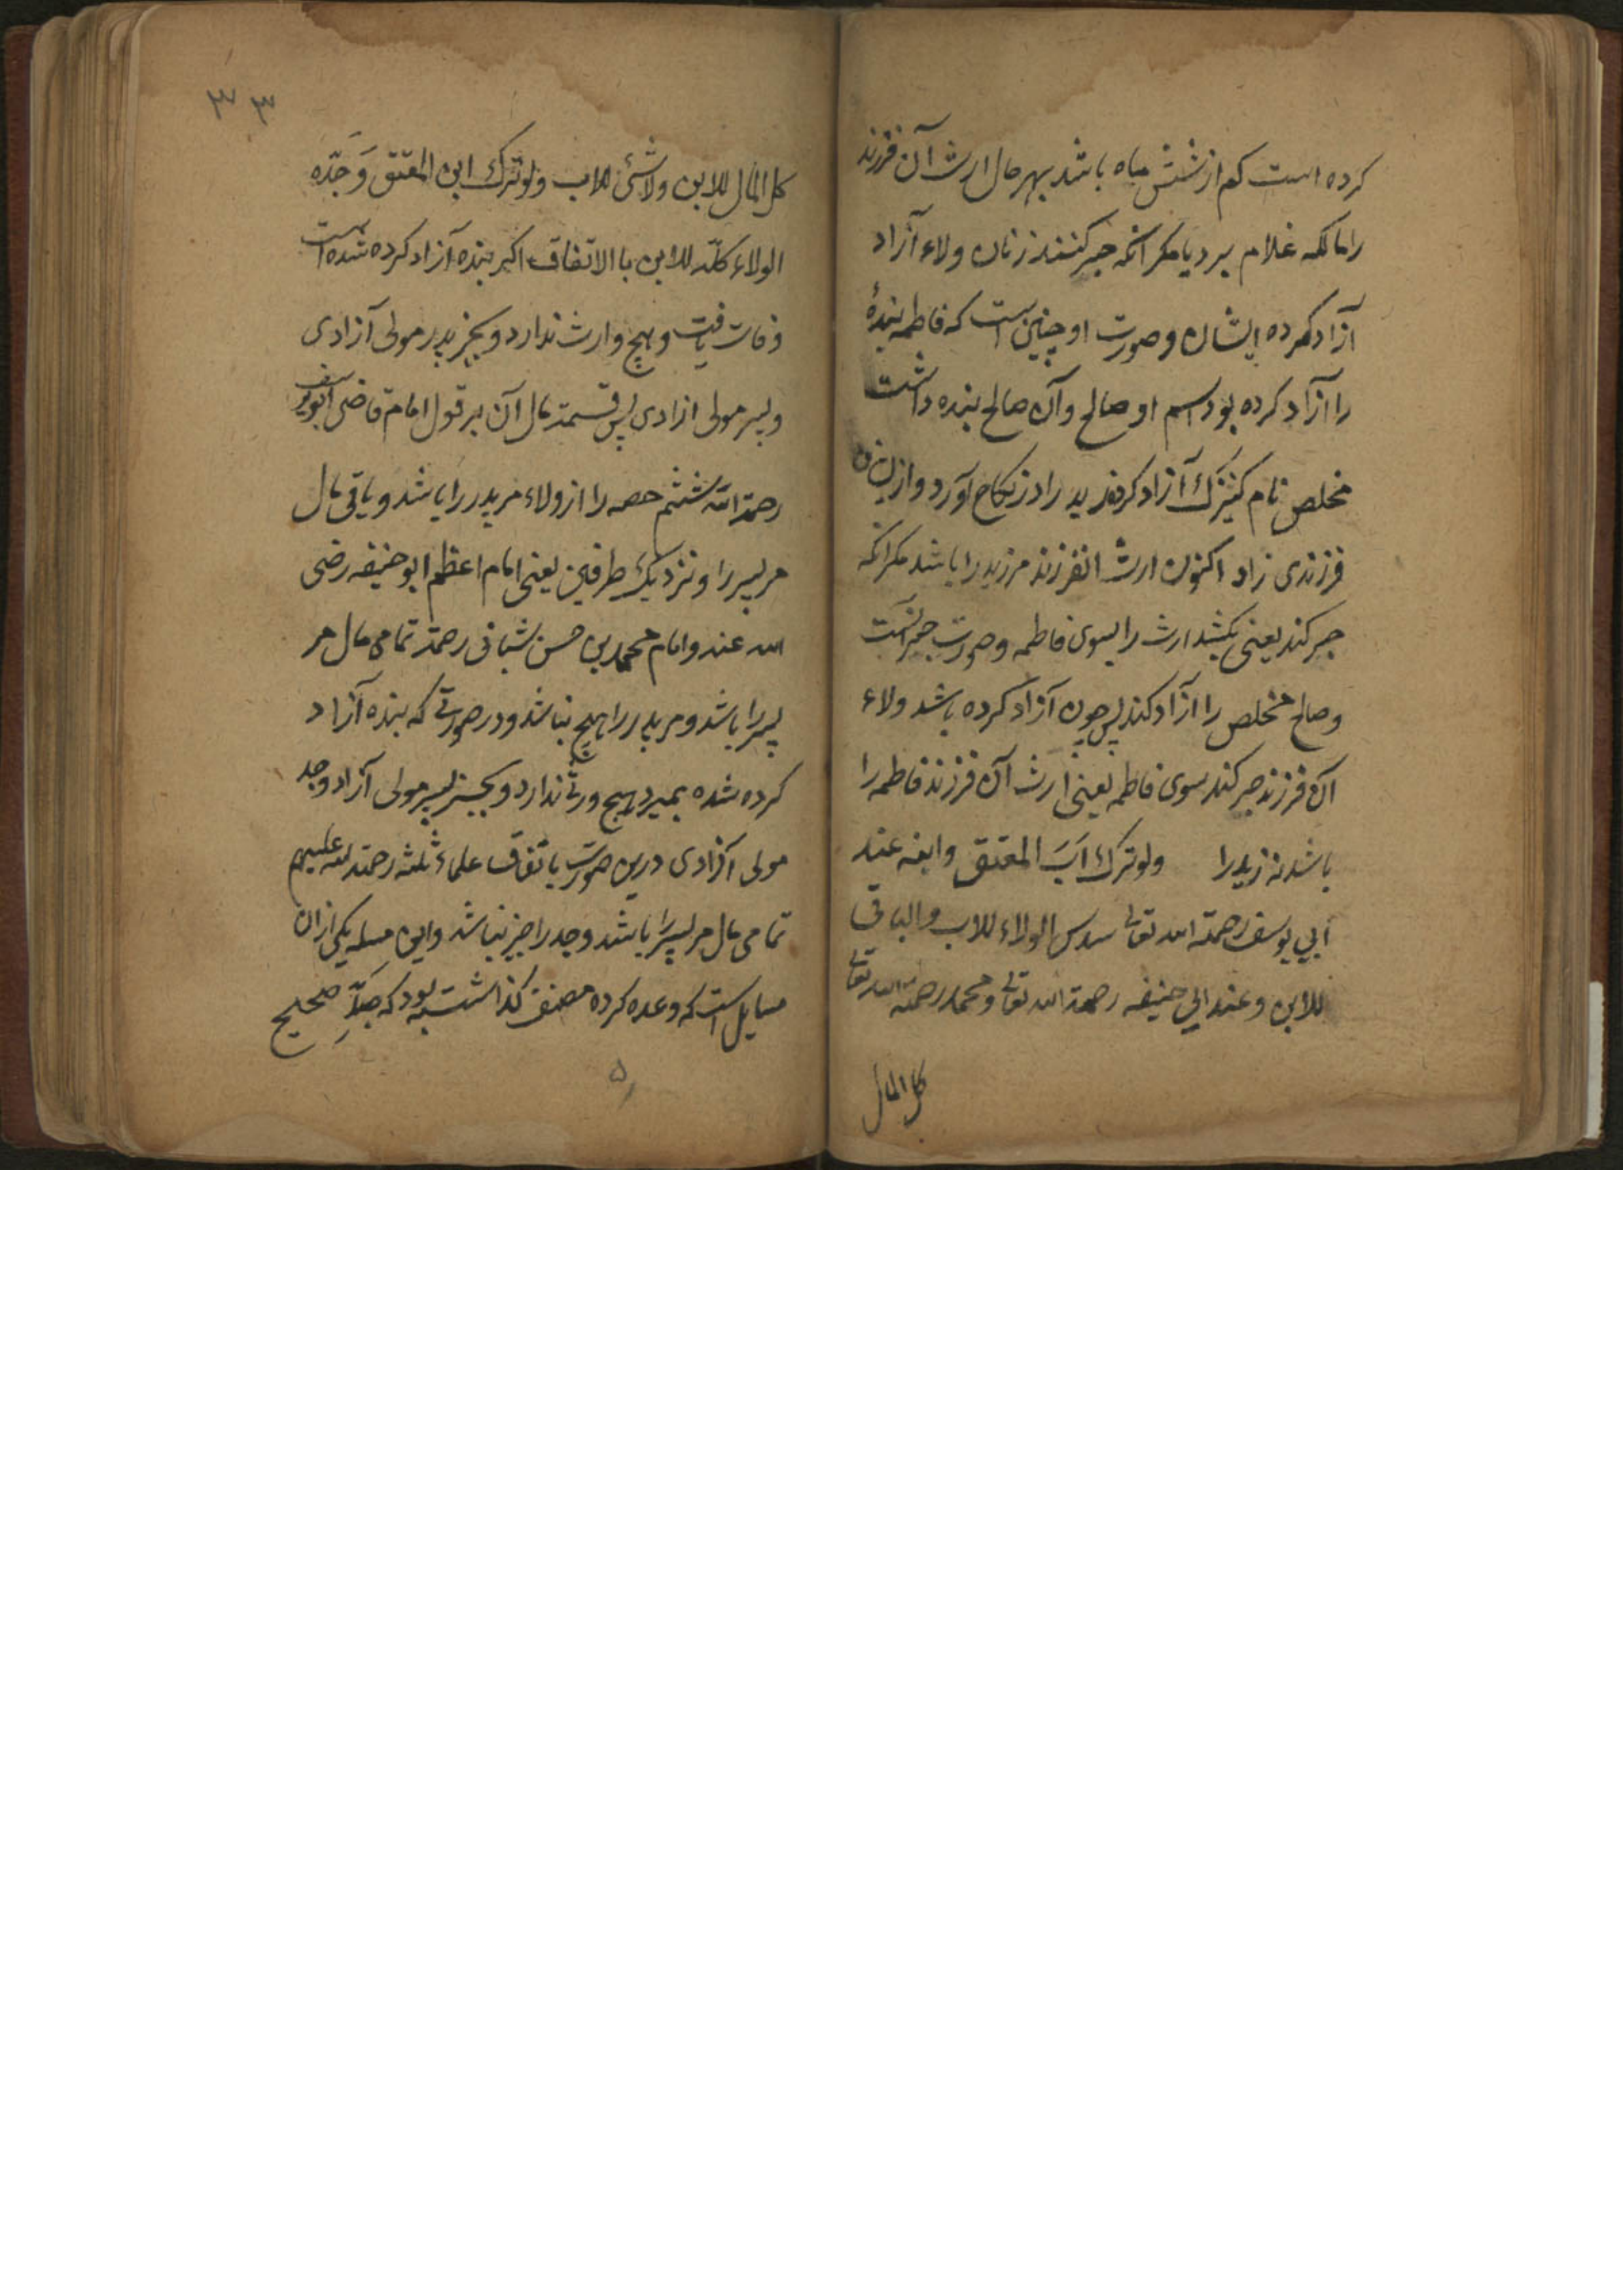 کرده است کم از شش ماه باشد بهر حال ارث آن فرزند
را مالکه غلام برد یا مکر آنکه جر کنند زنان ولاء آزاد
آزاد کرده ایشان و صورت او چنین است که فاطمه بندهٔ
را آزاد کرده بود اسم او صالح و آن صالح بنده داشت
مخلص نام کنیزک آزاد کرده زید را در نکاح آورد و ازین
فرزندی زاد اکنون ارث انفرزند مر زید را باشد مکر انکه
جر کند یعنی بکشد ارث را بسوی فاطمه و صورت جر آنست
و صالح مخلص را آزاد کند پس چون آزاد کرده باشد ولاء
آن فرزند جر کند سوی فاطمه یعنی ارث آن فرزند فاطمه را
باشد نه زید را ولو ترك اَبَ المعتق وابنه عند
أبي يوسف رحمة الله تعالی سدس الولاء للاب والباقی
للابن وعند ابي حنيفه رحمة الله تعالی ومحمد رحمة الله تعالی
كل المال
٣٣
كل المال للابن ولا شئ للاب ولو ترك ابن المعتق وَجَدّه
الولاء كلّه للابن با الاتفاق اکر بنده آزاد کرده شده است
وفات یافت و هیچ وارث ندارد و بجز پدر مولی آزادی
و پسر مولی ازادی پس قسمت مال آن بر قول امام قاضی ابویوسف
رحمة الله ششم حصه را از ولاء مر پدر را باشد و باقی مال
مر پسر را و نزدیک طرفین یعنی امام اعظم ابو حنیفه رضی
الله عنه و امام محمد بن حسن شیبانی رحمة تمامی مال مر
پسر را باشد و مر پدر را هیچ نباشد و در صورتے که بنده آزاد
کرده شده بمیرد هیچ ورثه ندارد و بجز پسر مولی آزاد وجد
مولی آزادی درین صورت باتفاق علماء ثلثه رحمة الله علیهم
تمامی مال مر پسر را باشد و جد را چیز نباشد و این مسله یکی ازان
مسایل است که وعده کرده مصنف کذاشته بود که جدِّ صحیح
۵